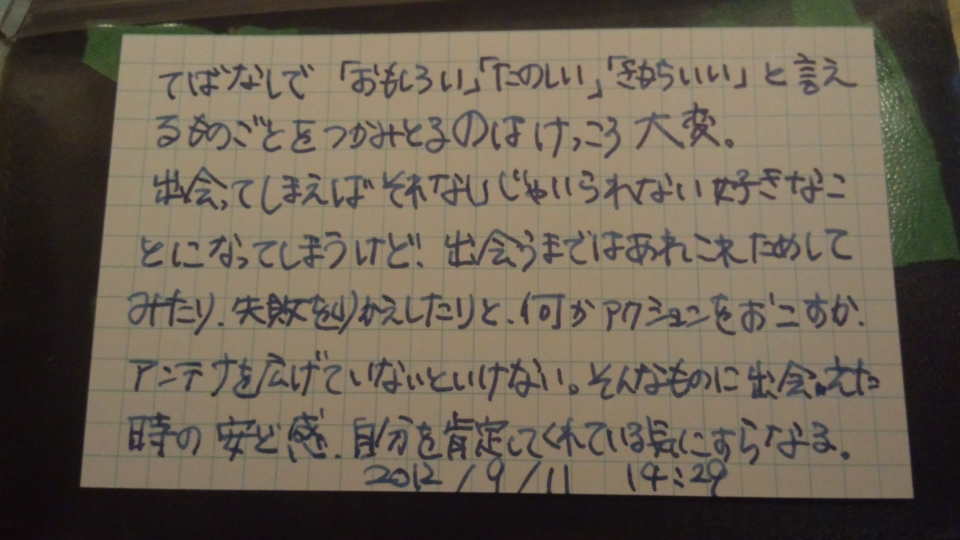 てばなしで「おもしろい」「たのしい」「きもちいい」と言え
るものごとをつかみとるのはけっこう大変。
出会ってしまえばそれなしじゃいられない好きなこ
とになってしまうけど、出会うまではあれこれためして
みたり、失敗をくりかえしたりと、何かアクションをおこすか、
アンテナを広げていないといけない。そんなものに出会えた
時の安ど感、自分を肯定してくれている気にすらなる。
2012/9/11 14:29